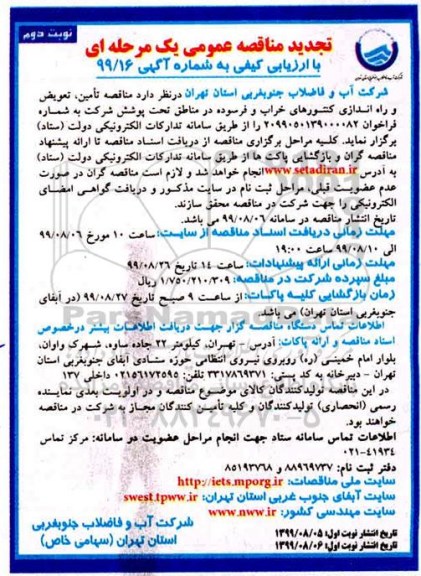 نوبت دوم
تجدید مناقصه عمومی یک مرحله ای
با ارزیابی کیفی به شماره آگهی ۹۹/۱۶
شرکت آب و فاضلاب جنوبغربی استان تهران درنظر دارد مناقصه تأمین، تعویض
و راه اندازی کنتورهای خراب و فرسوده در مناطق تحت پوشش شرکت به شماره
فراخوان ۲۰۹۹۰۵۰۱۳۹۰۰۰۰۸۲ را از طریق سامانه تدارکات الکترونیکی دولت (ستاد)
برگزار نماید. کلیه مراحل برگزاری مناقصه از دریافت اسناد مناقصه تا ارائه پیشنهاد
مناقصه گران و بازگشایی پاکت ها از طریق سامانه تدارکات الکترونیکی دولت (ستاد)
به آدرس www.setadiran.ir انجام خواهد شد و لازم است مناقصه گران در صورت
عدم عضویت قبلی، مراحل ثبت نام در سایت مذکور و دریافت گواهی امضای
الکترونیکی را جهت شرکت در مناقصه محقق سازند.
تاریخ انتشار مناقصه در سامانه ۹۹/۰۸/۰۶ می باشد.
مهلت زمانی دریافت اسناد مناقصه از سایت: ساعت ۱۰ مورخ ۹۹/۰۸/۰۶
الی ۹۹/۰۸/۱۰ ساعت ۱۹:۰۰
مهلت زمانی ارائه پیشنهادات: ساعت ۱۴ تاریخ ۹۹/۰۸/۲۶
مبلغ سپرده شرکت در مناقصه: ۱/۷۵۰/۲۱۰/۳۰۹ ریال
زمان بازگشایی کلیه پاکات: از ساعت ۹ صبح تاریخ ۹۹/۰۸/۲۷ (در آبفای
جنوبغربی استان تهران) می باشد.
اطلاعات تماس دستگاه مناقصه گزار جهت دریافت اطلاعات بیشتر درخصوص
اسناد مناقصه و ارائه پاکات: آدرس - تهران، کیلومتر ۲۲ جاده ساوه، شهرک واوان،
بلوار امام خمینی (ره) روبروی نیروی انتظامی حوزه ستادی آبفای جنوبغربی استان
تهران - دبیرخانه به کد پستی: ۳۳۱۷۸۶۹۳۷۱ تلفن: ۰۲۱۵۶۱۷۲۵۹۵ داخلی ۱۳۷
در این مناقصه تولیدکنندگان کالای موضوع مناقصه و در اولویت بعدی نماینده
رسمی (انحصاری) تولیدکنندگان و کلیه تأمین کنندگان مجاز به شرکت در مناقصه
خواهند بود.
اطلاعات تماس سامانه ستاد جهت انجام مراحل عضویت دو سامانه: مرکز تماس
۰۲۱-۴۱۹۳۴
دفتر ثبت نام: ۸۸۹۶۹۷۳۷ و ۸۵۱۹۳۷۶۸
سایت ملی مناقصات: http://iets.mporg.ir
سایت آبفای جنوب غربی استان تهران: swest.tpww.ir
سایت مهندسی کشور: www.nww.ir
شرکت آب و فاضلاب جنوبغربی
استان تهران (سهامی خاص)
تاریخ انتشار نوبت اول: ۱۳۹۹/۰۸/۰۵
تاریخ انتشار نوبت اول: ۱۳۹۹/۰۸/۰۶